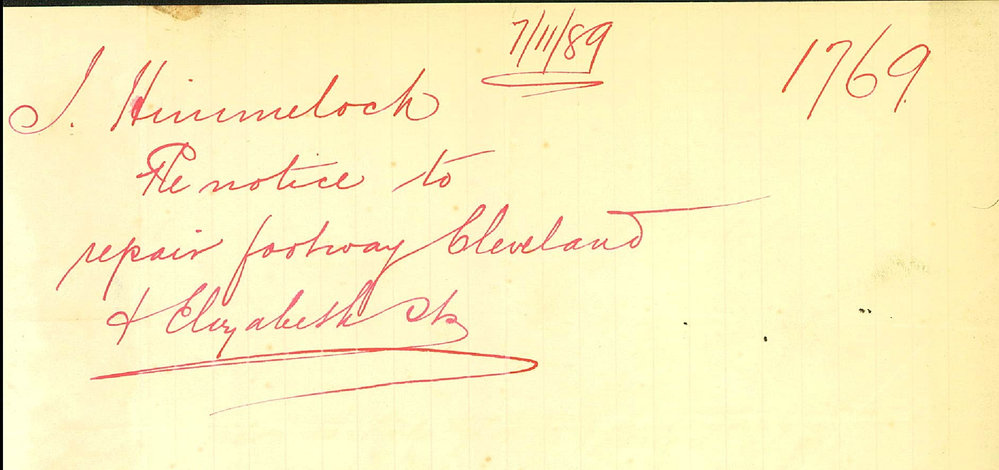 7/11/89
1769
J. Himmelock
Re notice to
repair footway Cleveland
& Elizabeth Sts